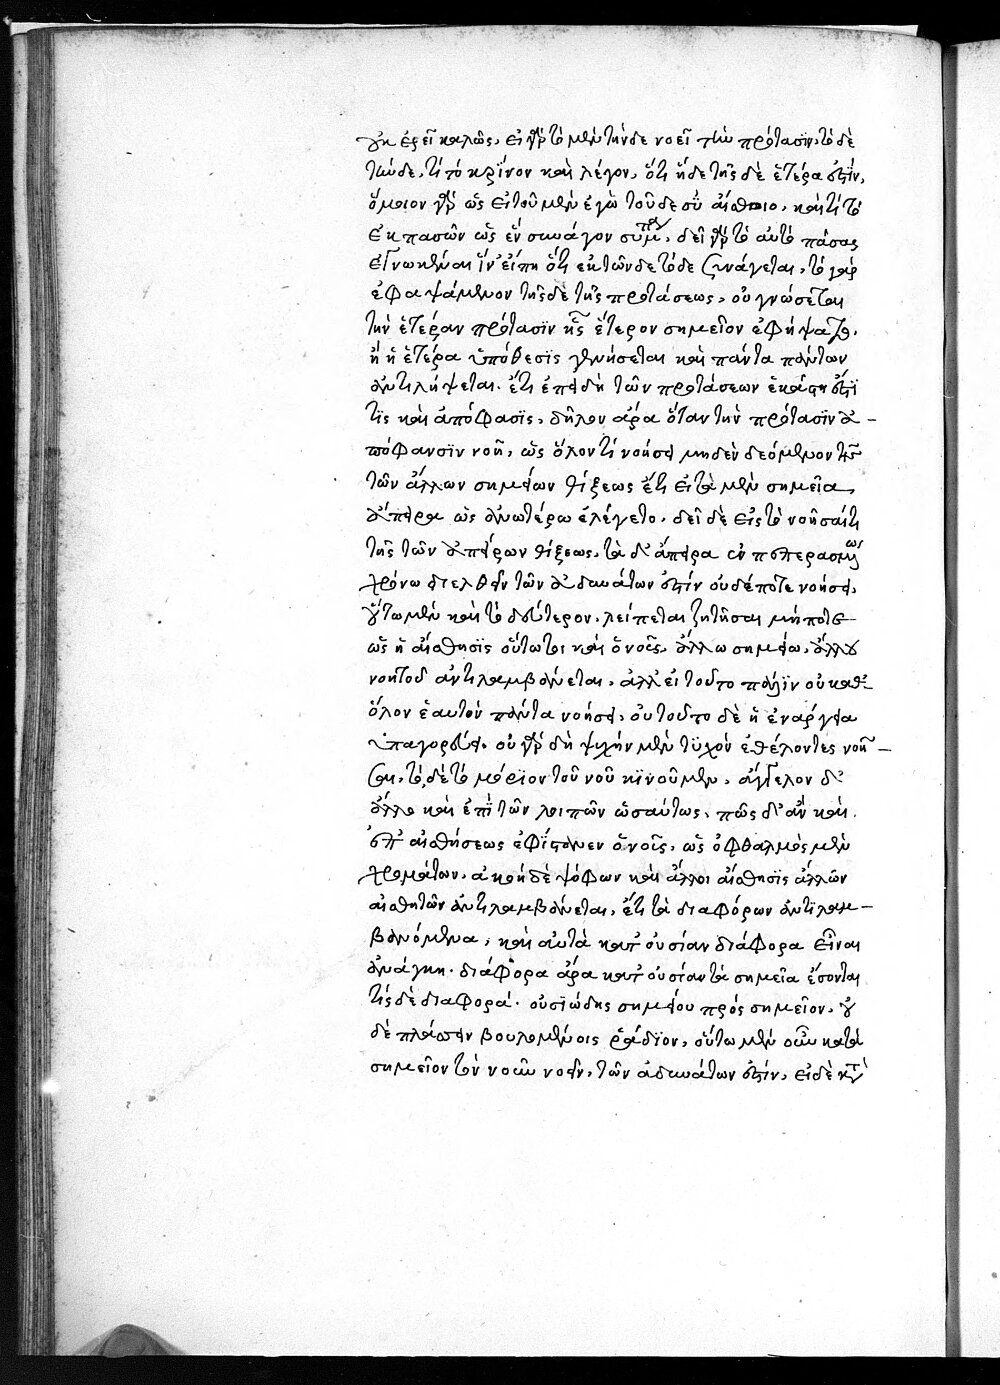 οὐκ ἕξει καλῶς, εἰ γὰρ τὸ μὲν τήνδε νοεῖ τὴν πρότασιν, τὸ δὲ
τήνδε, τί τὸ κρῖνον καὶ λέγον, ὅτι ἥδε τῆσδε ἑτέρα ἐστίν,
ὅμοιον γὰρ ὡς εἰ τοῦ μὲν ἐγὼ τοῦδε σὺ αἴσθοιο, καὶ τί τὸ
ἐκ πασῶν ὡς ἓν συνάγον συμπέρασμα, δεῖ γὰρ τὸ αὐτὸ πάσας
ἐγνωκέναι ἵν' εἴπη ὅτι ἐκ τῶνδε τόδε συνάγεται, τὸ γὰρ
ἐφαψάμενον τῆσδε τῆς προτάσεως, οὐ γνώσεται
τὴν ἑτέραν πρότασϊν ἧς ἕτερον σημεῖον ἐφήψατο,
ἢ ἡ ἑτέρα ὑπόθεσϊς γενήσεται καὶ πάντα πάντων
ἀντιλήψεται. ἔτι ἐπειδὴ τῶν προτάσεων ἑκάστη ἐστὶ
τὶς καὶ ἀπόφασϊς, δῆλον ἄρα ὅταν τὴν πρότασϊν ἀ-
πόφανσϊν νοῆ, ὡς ὅλον τι νοήσει μηδὲν δεόμενον τῆς
τῶν ἄλλων σημείων θίξεως ἔτι εἰ τὰ μὲν σημεῖα,
ἄπειρα ὡς ἀνωτέρω ἐλέγετο, δεῖ δὲ εἰς τὸ νοῆσαί τι
τῆς τῶν ἀπείρων θίξεως, τὰ δ' ἄπειρα ἐν πεπερασμένω
χρόνω διελθεῖν τῶν ἀδυνάτων ἐστὶν οὐδέποτε νοήσει,
οὕτω μὲν καὶ τὸ δεύτερον, λείπεται ζητῆσαι μήποτε
ὡς ἡ αἴσθησϊς οὕτωσι καὶ ὁ νοῦς, ἄλλω σημείω, ἄλλου
νοητοῦ ἀντιλαμβάνεται, ἀλλ' εἰ τοῦτο πάλϊν οὐ καθ'
ὅλον ἑαυτὸν πάντα νοήσει, οὐ τοῦτο δὲ ἡ ἐνάργεια
ὑπαγορεύει, οὐ γὰρ δὴ ψυχὴν μὲν τϋχὸν ἐθέλοντες νοῆ-
σαι, τόδε τὸ μόριον τοῦ νοῦ κϊνοῦμεν, ἄγγελον δ'
ἄλλο καὶ ἐπὶ τῶν λοιπῶν ὡσαύτως, πῶς δ' ἂν καὶ
ἐπ' αἰσθήσεως ἐφϊστάνειεν ὁ νοῦς, ὡς ὀφθαλμὸς μὲν
χρωμάτων, ἀκοὴ δὲ ψόφων καὶ ἄλλοι αἴσθησϊς ἄλλων
αἰσθητῶν ἀντιλαμβάνεται, ἔτι τὰ διαφόρων ἀντϊλαμ-
βανόμενα, καὶ αὐτὰ κατ' οὐσίαν διάφορα εἶναι
ἀνάγκη. διάφορα ἄρα κατ' οὐσίαν τὰ σημεῖα ἔσονται
τίς δὲ διαφορά. οὐσϊώδης σημείου πρὸς σημεῖον, οὐ
δὲ πλάσειν βουλομένοις ῥάδϊον, οὕτω μὲν οὖν κατὰ
σημεῖον τὸν νοῦν νοεῖν, τῶν ἀδυνάτων ἐστίν, εἰ δὲ κατὰ